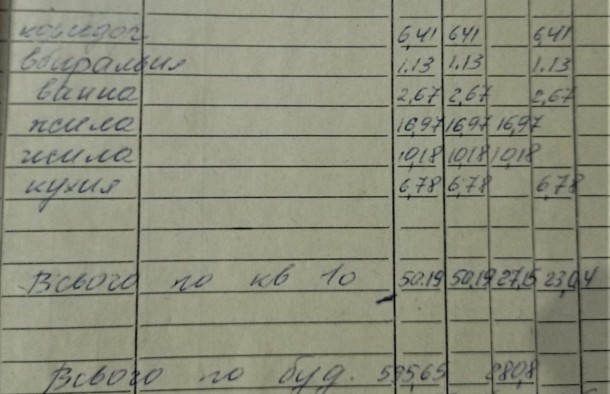 коридор 6,41 6,41 6,41
вбиральня 1.13 1.13 1.13
ванна 2,67 2,67 2,67
жила 16,97 16,97 16,97
жила 10,18 10,18 10,18
кухня 6,78 6,78 6,78
Всього по кв 10 50.19 50,19 27,15 23,04
Всього по буд. 535,65 280,8